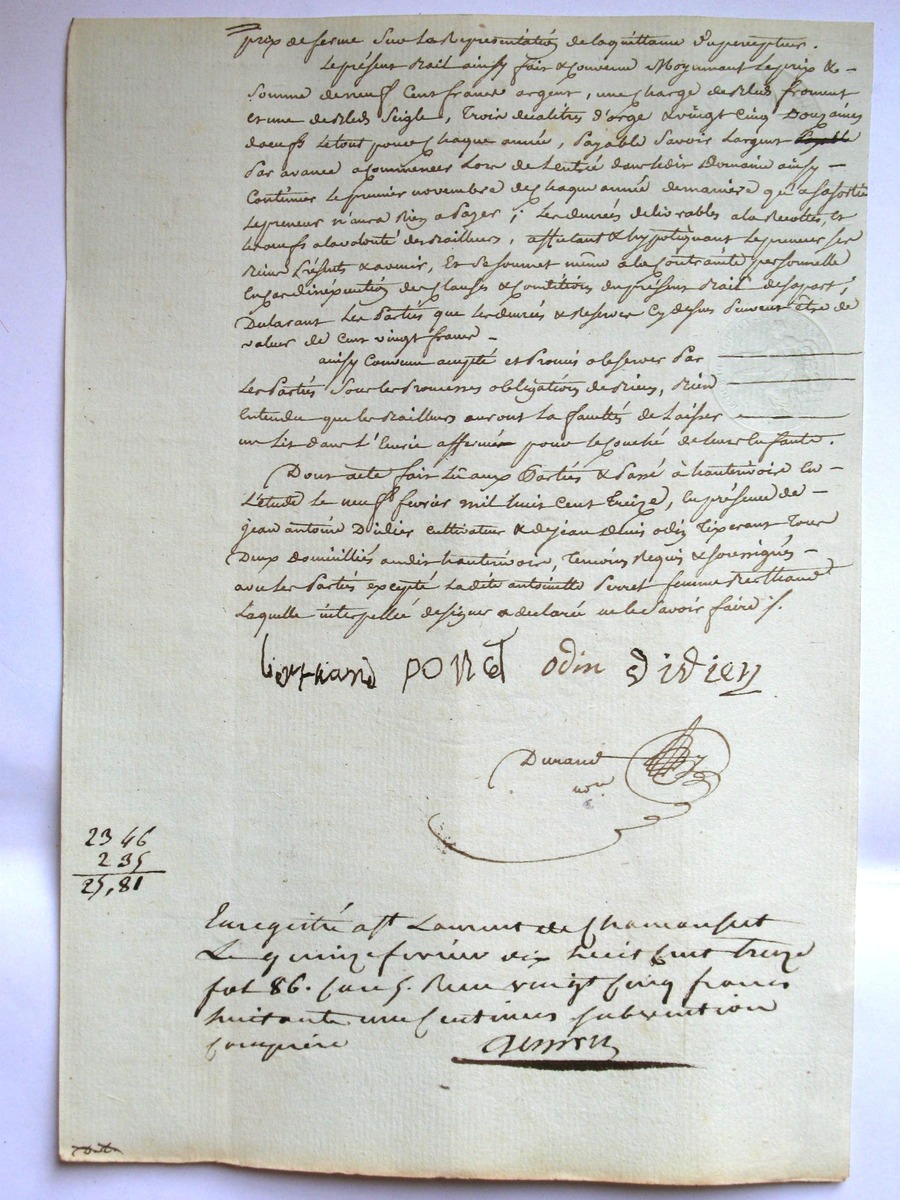 prix de ferme sur la Représentation de la quittance du percepteur.
Le présent Bail ainsy fait & convenu Moyennant le prix &
Somme de neuf Cent francs argent, une charge de Bled froment
et une de Bled Seigle, Trois decalitres d'orge & vingt Cinq Douzaines
d'oeufs Le tout pour chaque année, Payable Savoir L'argent Payable
Par avance a commencer Lors de L'entrée dans ledit Domaine ainsy
Continuer Le premier novembre de chaque année de maniere qu'a sa sortie
Le preneur n'aura Rien a Payer ; Les denrées delivrables a la Recoltes, et
les oeufs a la volonté des Bailleurs, affectant & hypotequant Le preneur ses
Biens Présents & avenir, Et se soumet même à la Contrainte personnelle
En cas d'inexecution des Clauses & Conditions du présent Bail de sa part ;
Declarant Les Parties que les denrées & Reserves Cy dessus Peuvent être de
valeur de Cent vingt francs -
ainsy Convenu accepté et Promis observer Par
Les Parties Sous les Promesses obligations de Biens, Bien
Entendu que les Bailleurs auront La faculté de Laisser
un Lit dans l'Ecurie affermée pour le Couché de leurs Enfants.
Dont acte fait Lû aux Parties & Passé à hauterivoire En
L'étude le neuf fevrier mil huit cent Treize, En présence de
jean antoine Didier cultivateur & de jean Denis odin Tixerant Tous
Deux Domicilliés audit hauterivoire, Temoins Requis & Soussignés
avec les Parties excepté Ladite antoinette Poncet femme Berthrand
Laquelle interpellée de signer a declarée ne le Savoir faire ./.
bertrand PONCET odin Didier
Durand
nore
23 46
2 35
25,81
Enregistré a St Laurent de Chamousset
Le quinze fevrier dix huit cent treize
fol 86. Case 5. Recu vingt cinq francs
huitante une Centimes subvention
comprise